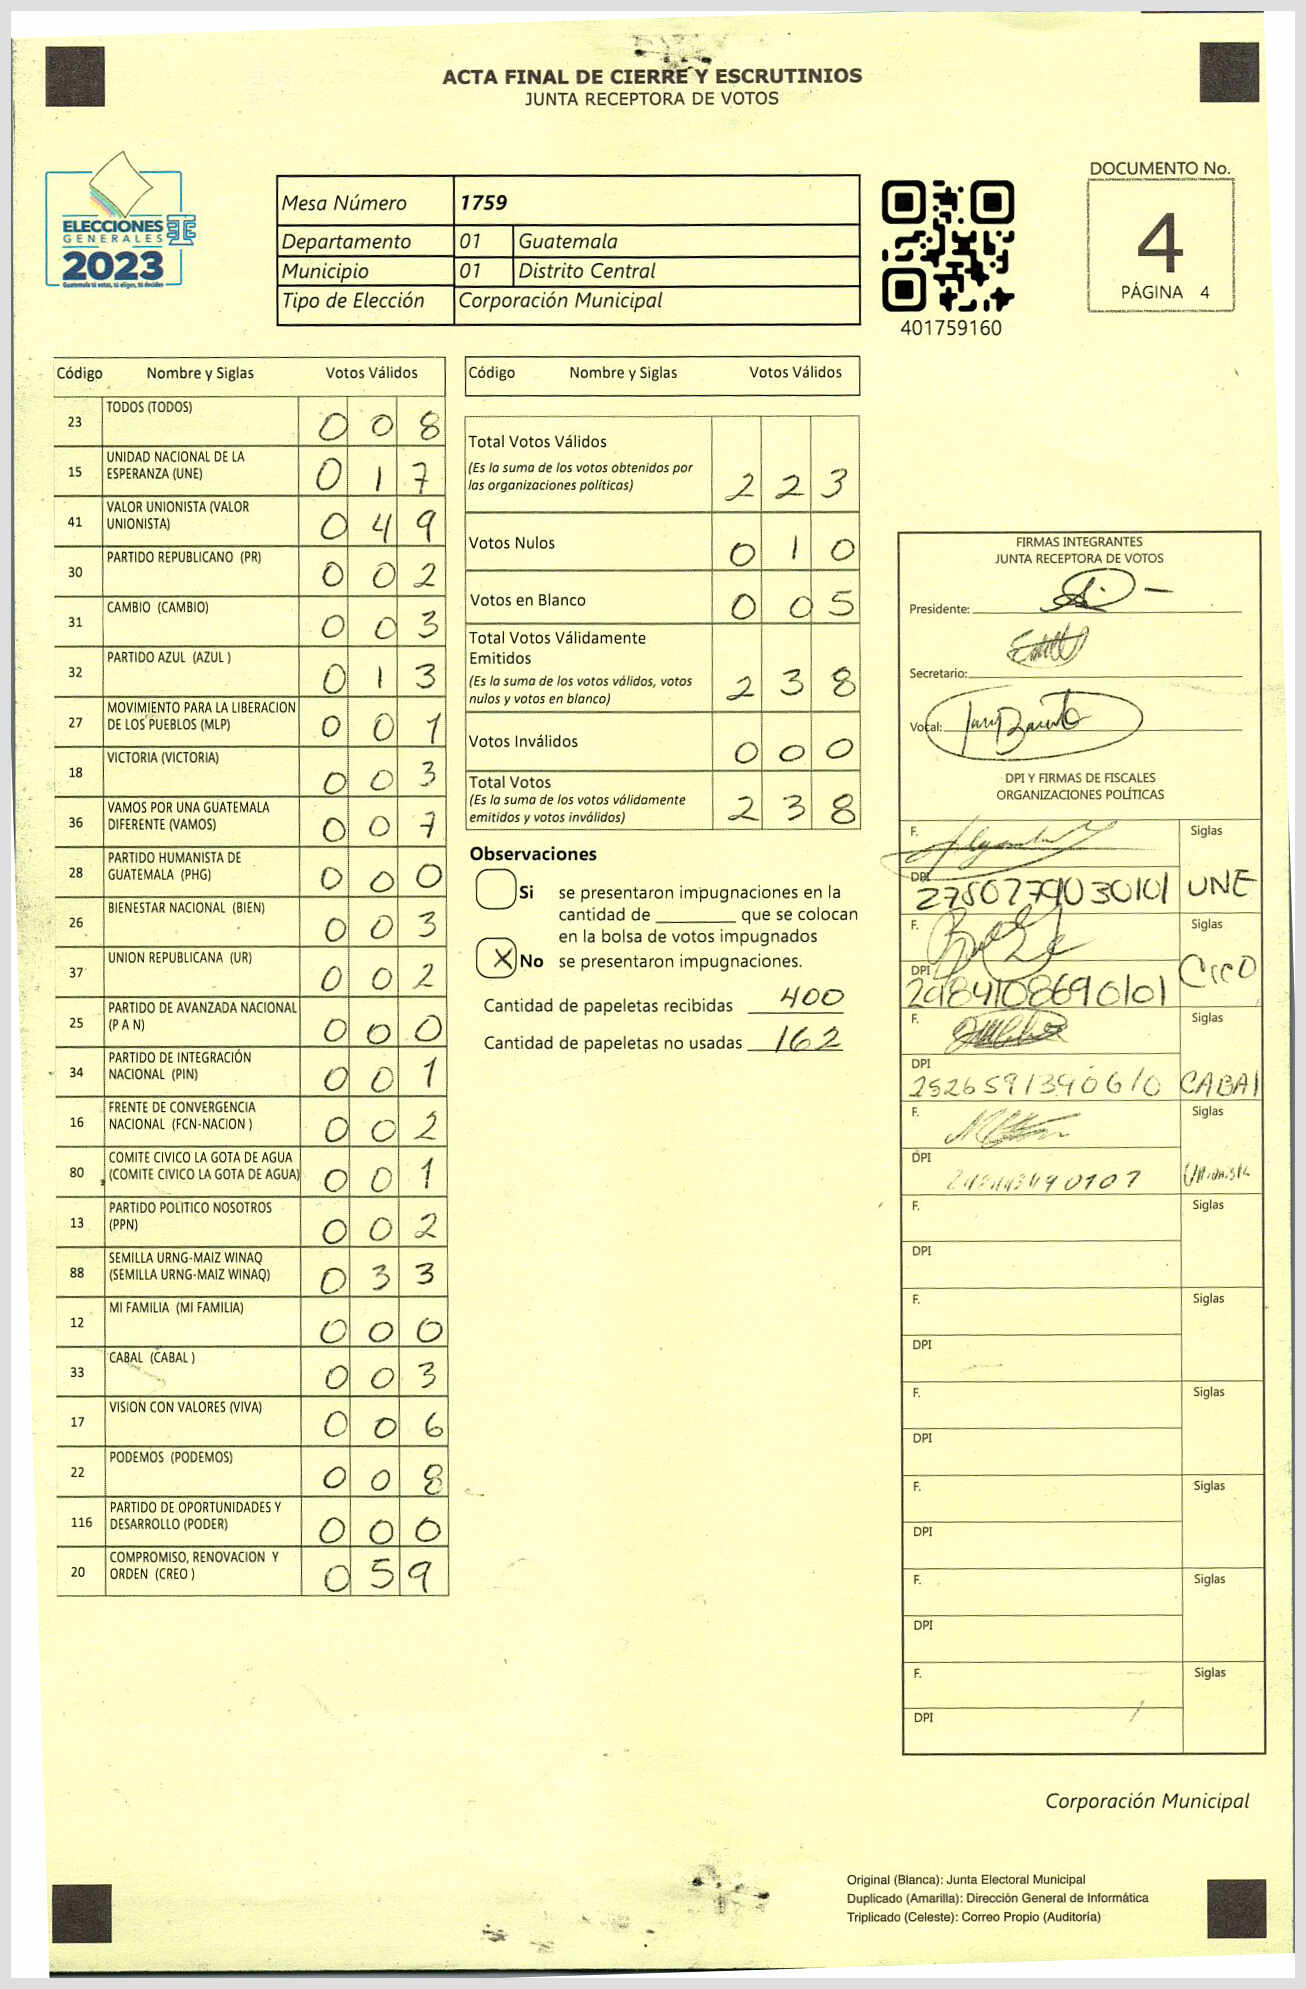 ACTA FINAL DE CIERRE Y ESCRUTINIOS
JUNTA RECEPTORA DE VOTOS
ELECCIONES
GENERALES
2023
Guatemala tú votas, tú eliges, tú decides
TSE
Mesa Número 1759
Departamento 01 Guatemala
Municipio 01 Distrito Central
Tipo de Elección Corporación Municipal
401759160
DOCUMENTO No.
4
PÁGINA 4
Código Nombre y Siglas Votos Válidos
23 TODOS (TODOS) 0 0 8
15 UNIDAD NACIONAL DE LA
ESPERANZA (UNE) 0 1 7
41 VALOR UNIONISTA (VALOR
UNIONISTA) 0 4 9
30 PARTIDO REPUBLICANO (PR) 0 0 2
31 CAMBIO (CAMBIO) 0 0 3
32 PARTIDO AZUL (AZUL ) 0 1 3
27 MOVIMIENTO PARA LA LIBERACION
DE LOS PUEBLOS (MLP) 0 0 1
18 VICTORIA (VICTORIA) 0 0 3
36 VAMOS POR UNA GUATEMALA
DIFERENTE (VAMOS) 0 0 7
28 PARTIDO HUMANISTA DE
GUATEMALA (PHG) 0 0 0
26 BIENESTAR NACIONAL (BIEN) 0 0 3
37 UNION REPUBLICANA (UR) 0 0 2
25 PARTIDO DE AVANZADA NACIONAL
(P A N) 0 0 0
34 PARTIDO DE INTEGRACIÓN
NACIONAL (PIN) 0 0 1
16 FRENTE DE CONVERGENCIA
NACIONAL (FCN-NACION ) 0 0 2
80 COMITE CIVICO LA GOTA DE AGUA
(COMITE CIVICO LA GOTA DE AGUA) 0 0 1
13 PARTIDO POLITICO NOSOTROS
(PPN) 0 0 2
88 SEMILLA URNG-MAIZ WINAQ
(SEMILLA URNG-MAIZ WINAQ) 0 3 3
12 MI FAMILIA (MI FAMILIA) 0 0 0
33 CABAL (CABAL ) 0 0 3
17 VISION CON VALORES (VIVA) 0 0 6
22 PODEMOS (PODEMOS) 0 0 8
116 PARTIDO DE OPORTUNIDADES Y
DESARROLLO (PODER) 0 0 0
20 COMPROMISO, RENOVACION Y
ORDEN (CREO ) 0 5 9
Código Nombre y Siglas Votos Válidos
Total Votos Válidos
(Es la suma de los votos obtenidos por
las organizaciones políticas) 2 2 3
Votos Nulos 0 1 0
Votos en Blanco 0 0 5
Total Votos Válidamente
Emitidos
(Es la suma de los votos válidos, votos
nulos y votos en blanco) 2 3 8
Votos Inválidos 0 0 0
Total Votos
(Es la suma de los votos válidamente
emitidos y votos inválidos) 2 3 8
Observaciones
Si se presentaron impugnaciones en la
cantidad de ________ que se colocan
en la bolsa de votos impugnados
X No se presentaron impugnaciones.
Cantidad de papeletas recibidas 400
Cantidad de papeletas no usadas 162
FIRMAS INTEGRANTES
JUNTA RECEPTORA DE VOTOS
Presidente:
Secretario:
Vocal:
DPI Y FIRMAS DE FISCALES
ORGANIZACIONES POLÍTICAS
F. Siglas
DPI
27502779030101 UNE
F. Siglas
DPI
2984108690101
F. Siglas
DPI
2526591390610 CABAl
F. Siglas
DPI
F. Siglas
DPI
F. Siglas
DPI
F. Siglas
DPI
F. Siglas
DPI
F. Siglas
DPI
F. Siglas
DPI
Corporación Municipal
Original (Blanca): Junta Electoral Municipal
Duplicado (Amarilla): Dirección General de Informática
Triplicado (Celeste): Correo Propio (Auditoría)